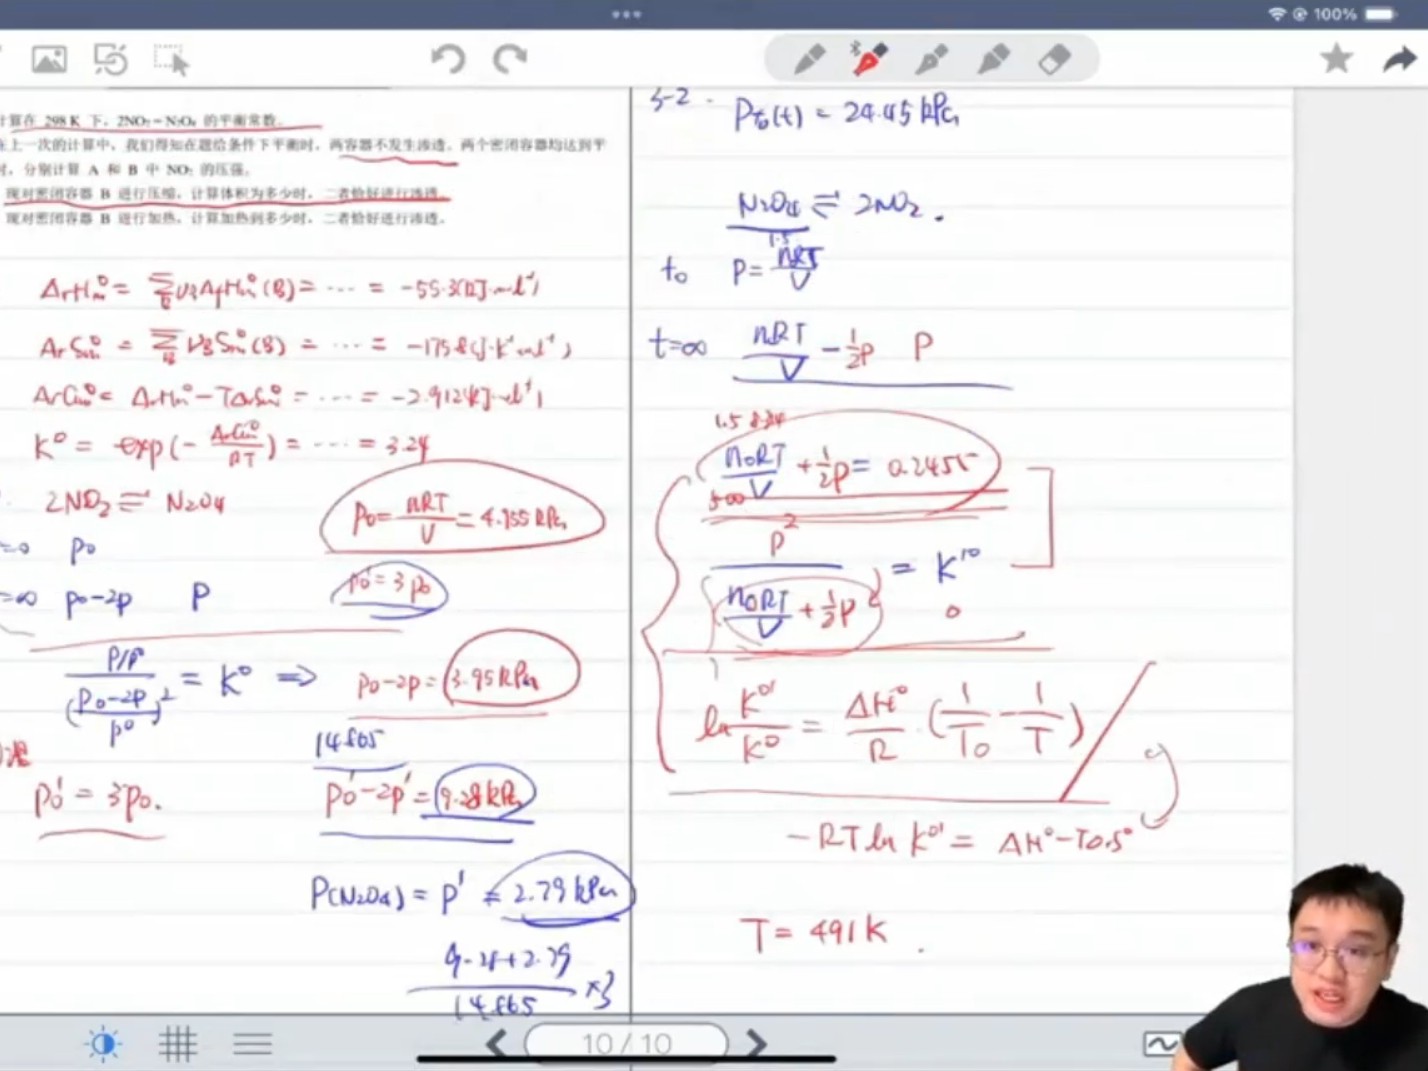 100%
计算在 298 K 下，2NO₂=N₂O₄ 的平衡常数。
在上一次的计算中，我们得知在题给条件下平衡时，两容器不发生渗透。两个密闭容器均达到平
时，分别计算 A 和 B 中 NO₂ 的压强。
现对密闭容器 B 进行压缩，计算体积为多少时，二者恰好进行渗透。
现对密闭容器 B 进行加热，计算加热到多少时，二者恰好进行渗透。
ΔrHm° = Σ_B ν_BΔfHm°(B) = ⋯ =
ΔrSm° = Σ_B ν_B Sm°(B) = ⋯ =
ΔrGm° = ΔrHm° − TΔrSm° = ⋯ =
K° = exp(− ΔrGm°/RT) = ⋯ = 3.24
2NO₂ ⇌ N₂O₄
p₀ = nRT/V = 4.955 kPa
p₀
p₀' = 3p₀
p₀−2p P
(P/p°)/((p₀−2p)²/p°) = K° ⇒ p₀−2p = 3.95 kPa
14.865
p₀' = 3p₀. p₀'−2p' = 9.28 kPa
P(N₂O₄) = p' = 2.79 kPa
(9.28+2.79)/14.865 ×3
3-2. P₀(t) = 24.45 kPa
N₂O₄ ⇌ 2NO₂.
1.5
t₀ P = nRT/V
t=∞ nRT/V − ½p P
1.5 8.314
n₀RT/V + ½p = 0.2455
500
p²/(n₀RT/V + ½p) = K'°
ln K°'/K° = ΔH°/R · (1/T₀ − 1/T)
−RT ln K°' = ΔH° − TΔS°
T = 491 K.
10 / 10